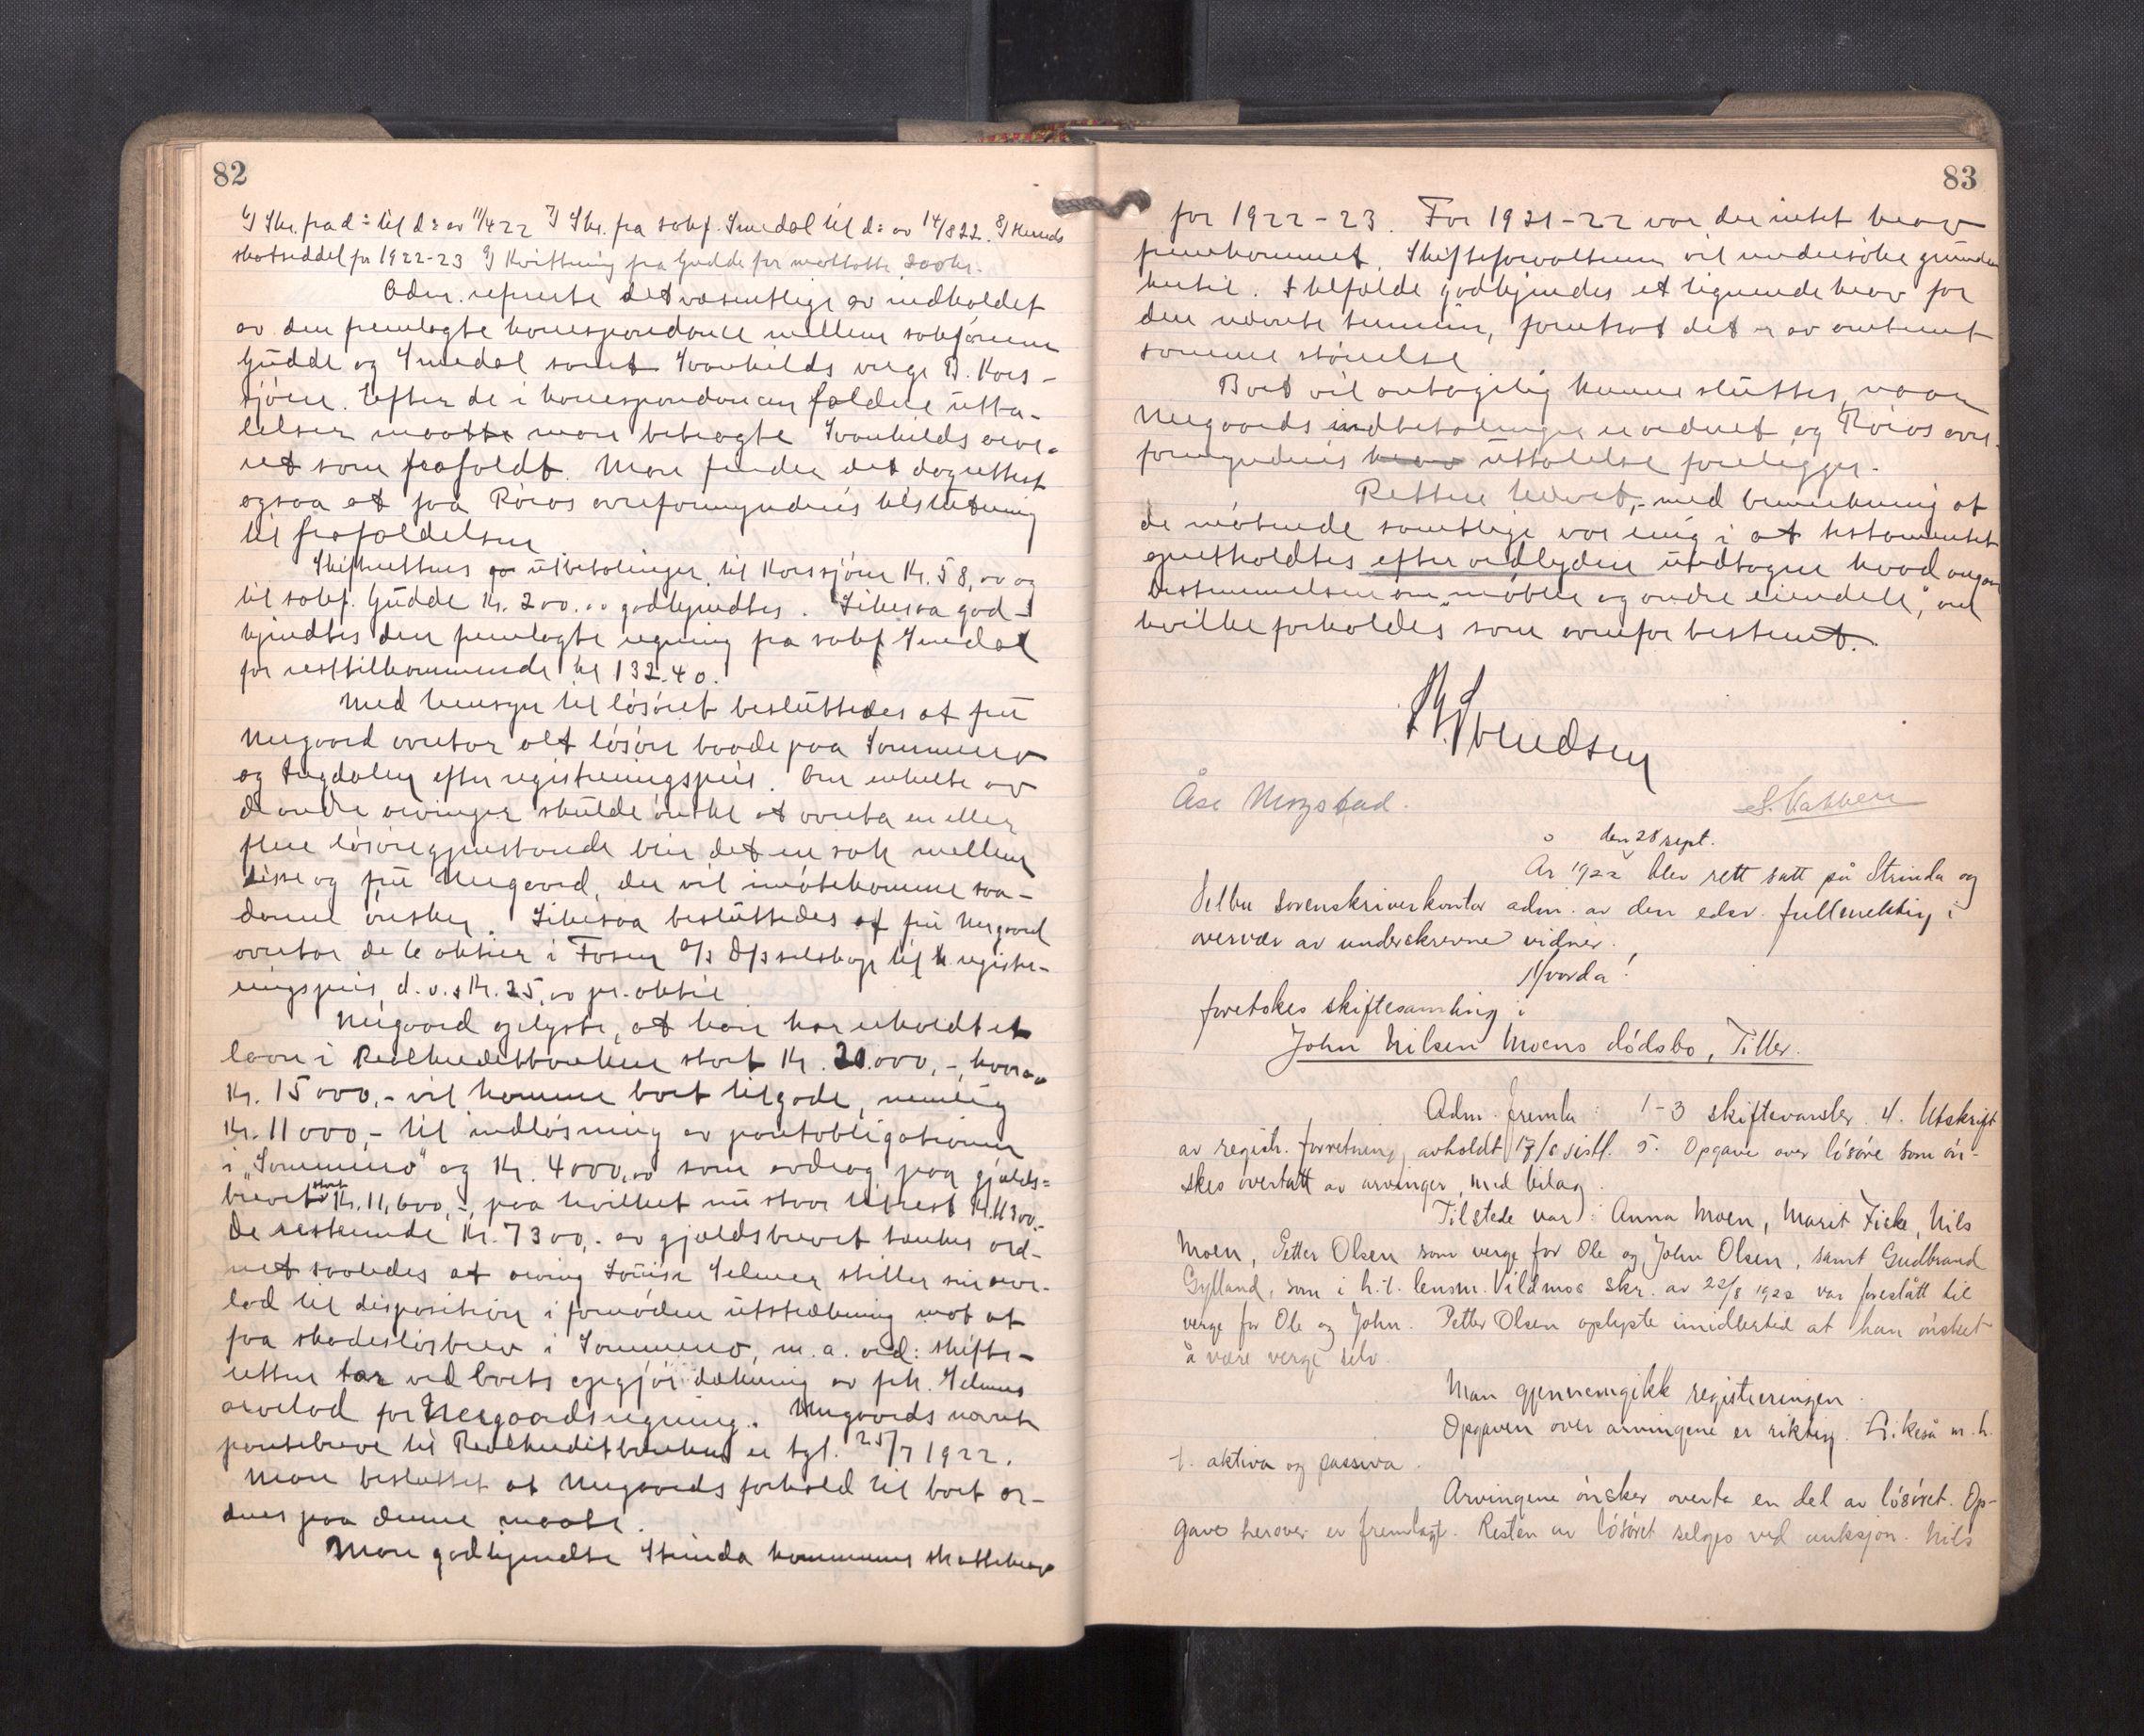 82
6) Skr. fra d: til d: av 11/4 22 7) Skr. fra sakf. Smedal til d: av 14/8 22. 8)
skatseddel for 1922-23 9) Kvittering fra Gudde for mottatte 200 kr.
Adm. refererte det væsentlige av indholdet
av den fremlagte korrespondance mellem sakførerne
Gudde og Smedal samt Svanhilds verge B. Kors-
sjøen. Efter de i korrespondancen faldne utta-
lelser maatte man betragte Svanhilds arve-
ret som frafaldt. Man finder det dog rettest
ogsaa at faa Røros overformynderis tilslutning
til frafaldelsen
Skifterettens utbetalinger til Korssjøen Kr. 58,00 og
til sakf. Gudde Kr. 200.00 godkjendtes. Likesaa god-
kjendtes den fremlagte regning fra sakf Smedal
for resttilkommende kr 132.40.
Med hensyn til løsøret besluttedes at fru
Mergaard overtar alt løsøre baade paa Sommero
og Ingdalen efter registreringspris. Om enkelte av
de andre arvinger skulde ønske at overta en eller
flere løsøregjenstande blir det en sak mellem
disse og fru Mergaard, der vil imøtekomme saa-
danne ønsker. Likesaa besluttedes at fru Mergaard
overtar de 6 aktier i Fosen A/S D/S selskap til registre-
ringspris, d.v.s Kr. 25,00 pr. aktie
Mergaard oplyste, at han har erholdt et
laan i Realkreditbanken stort Kr. 20.000,-, hvorav
Kr. 15000,- vil komme boet tilgode, nemlig
Kr. 11000,- til indløsning av panteobligationen
i "Sommero" og Kr. 4000,00 som avdrag paa gjælds-
brevet stort Kr. 11,600,-, paa hvilket nu staar til rest Kr. 11300.-
De resterende Kr. 7300,- av gjældsbrevet tænkes ord-
net saaledes at arving Louise Selmer stiller sin arve-
lod til disposition i fornøden utstrækning mot at
faa skadesløsbrev i Sommero, m.a. ord: skifte-
retten tar ved boets opgjør dækning av frk. Selmers
arvelod for Mergaards regning. Mergaards
pantebreve til Realkreditbanken er tgl. 25/7 1922.
Man besluttet at Mergaards forhold til boet or-
dnes paa denne maate.
Man godkjendte Strinda kommunes skattekrav
83
for 1922-23. For 1921-22 var der intet krav
fremkommet. Skifteforvalteren vil undersøke grunden
hertil. I tilfælde godkjendes et lignende krav for
den nævnte termin, forutsat det er av omtrent
samme størrelse
Boet vil antagelig kunne sluttes, naar
Mergaards indbetalinger er ordnet og Røros over-
formynderis uttalelse foreligger.
Retten hævet,- med bemerkning at
de møtende samtlige var enig i at testamentet
opretholdtes efter ordlyden undtagen hvad angaar
bestemmelsen om "møbler og andre eiendele", om
hvilke forholdes som ovenfor bestemt.
Svendsen
Åse Mogstad.
den 28 sept.
År 1922 blev rett satt på Strinda og
Selbu sorenskriverkontor adm. av den edsv. fullmektig i
overvær av underskrevne vidner.
Hvorda!
foretokes skiftesamling i
John Nilsen Moens dødsbo, Tiller.
Adm. fremla: 1-3 skiftevarsler. 4. Utskrift
av registr. forretning, avholdt 17/8 sistl. 5. Opgave over løsøre som øn-
skes overtatt av arvinger, med bilag.
Tilstede var: Anna Moen, Marit Fiske, Nils
Moen, Petter Olsen som verge for Ole og John Olsen, samt Gudbrand
Gylland, som i h.t. lensm. Vildmos skr. av 22/8 1922 var foreslått til
verge for Ole og John. Petter Olsen oplyste imidlertid at han ønsket
å være verge selv.
Man gjennemgikk registreringen.
Opgaven over arvingene er riktig. Likeså m. h.
t. aktiva og passiva.
Arvingene ønsker overta en del av løsøret. Op-
gave herover er fremlagt. Resten av løsøret selges ved auksjon. Nils